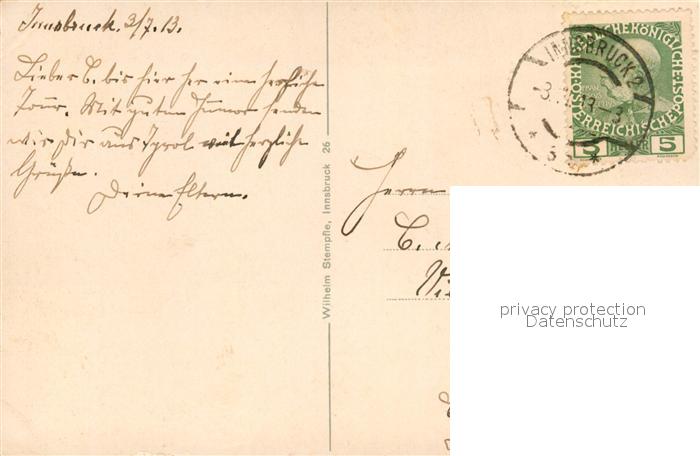 Innsbruck. 3/7.13.
Lieber C. bis hier her eine herrliche
Tour. Mit guten Humor senden
wir dir aus Tyrol viel herzliche
Grüße.
Deine Eltern.
Wilhelm Stempfle, Innsbruck 26
KAISERLICHE KÖNIGLICHE
ÖSTERREICHISCHE POST
5 HELLER 5
INNSBRUCK 2
Herrn
C.
privacy protection
Datenschutz